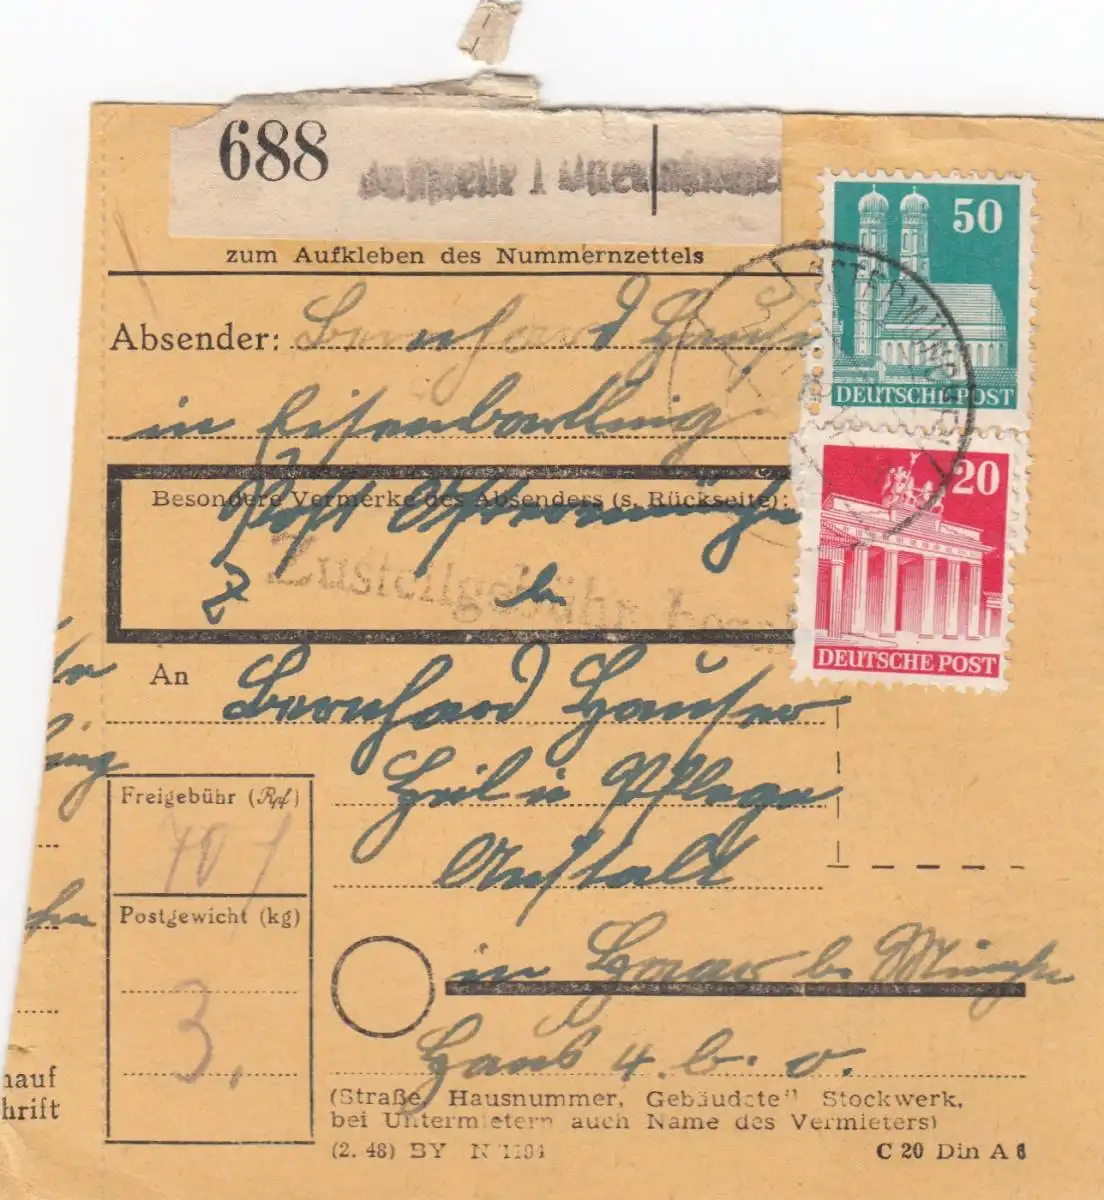 688
zum Aufkleben des Nummernzettels
50
DEUTSCHE POST
Absender: Bernhard
in Eisenbartling
20
DEUTSCHE POST
Besondere Vermerke des Absenders (s. Rückseite):
Post
Zustellgebühr
An Bernhard Hauser
Heil u Pflege
Anstalt
in Haar b.
Haus 4. b. o.
Freigebühr (Rpf)
70
Postgewicht (kg)
3.
(Straße, Hausnummer, Gebäudete Stockwerk,
bei Untermietern auch Name des Vermieters)
(2. 48) BY
C 20 Din A 6
ing
hauf
hrift